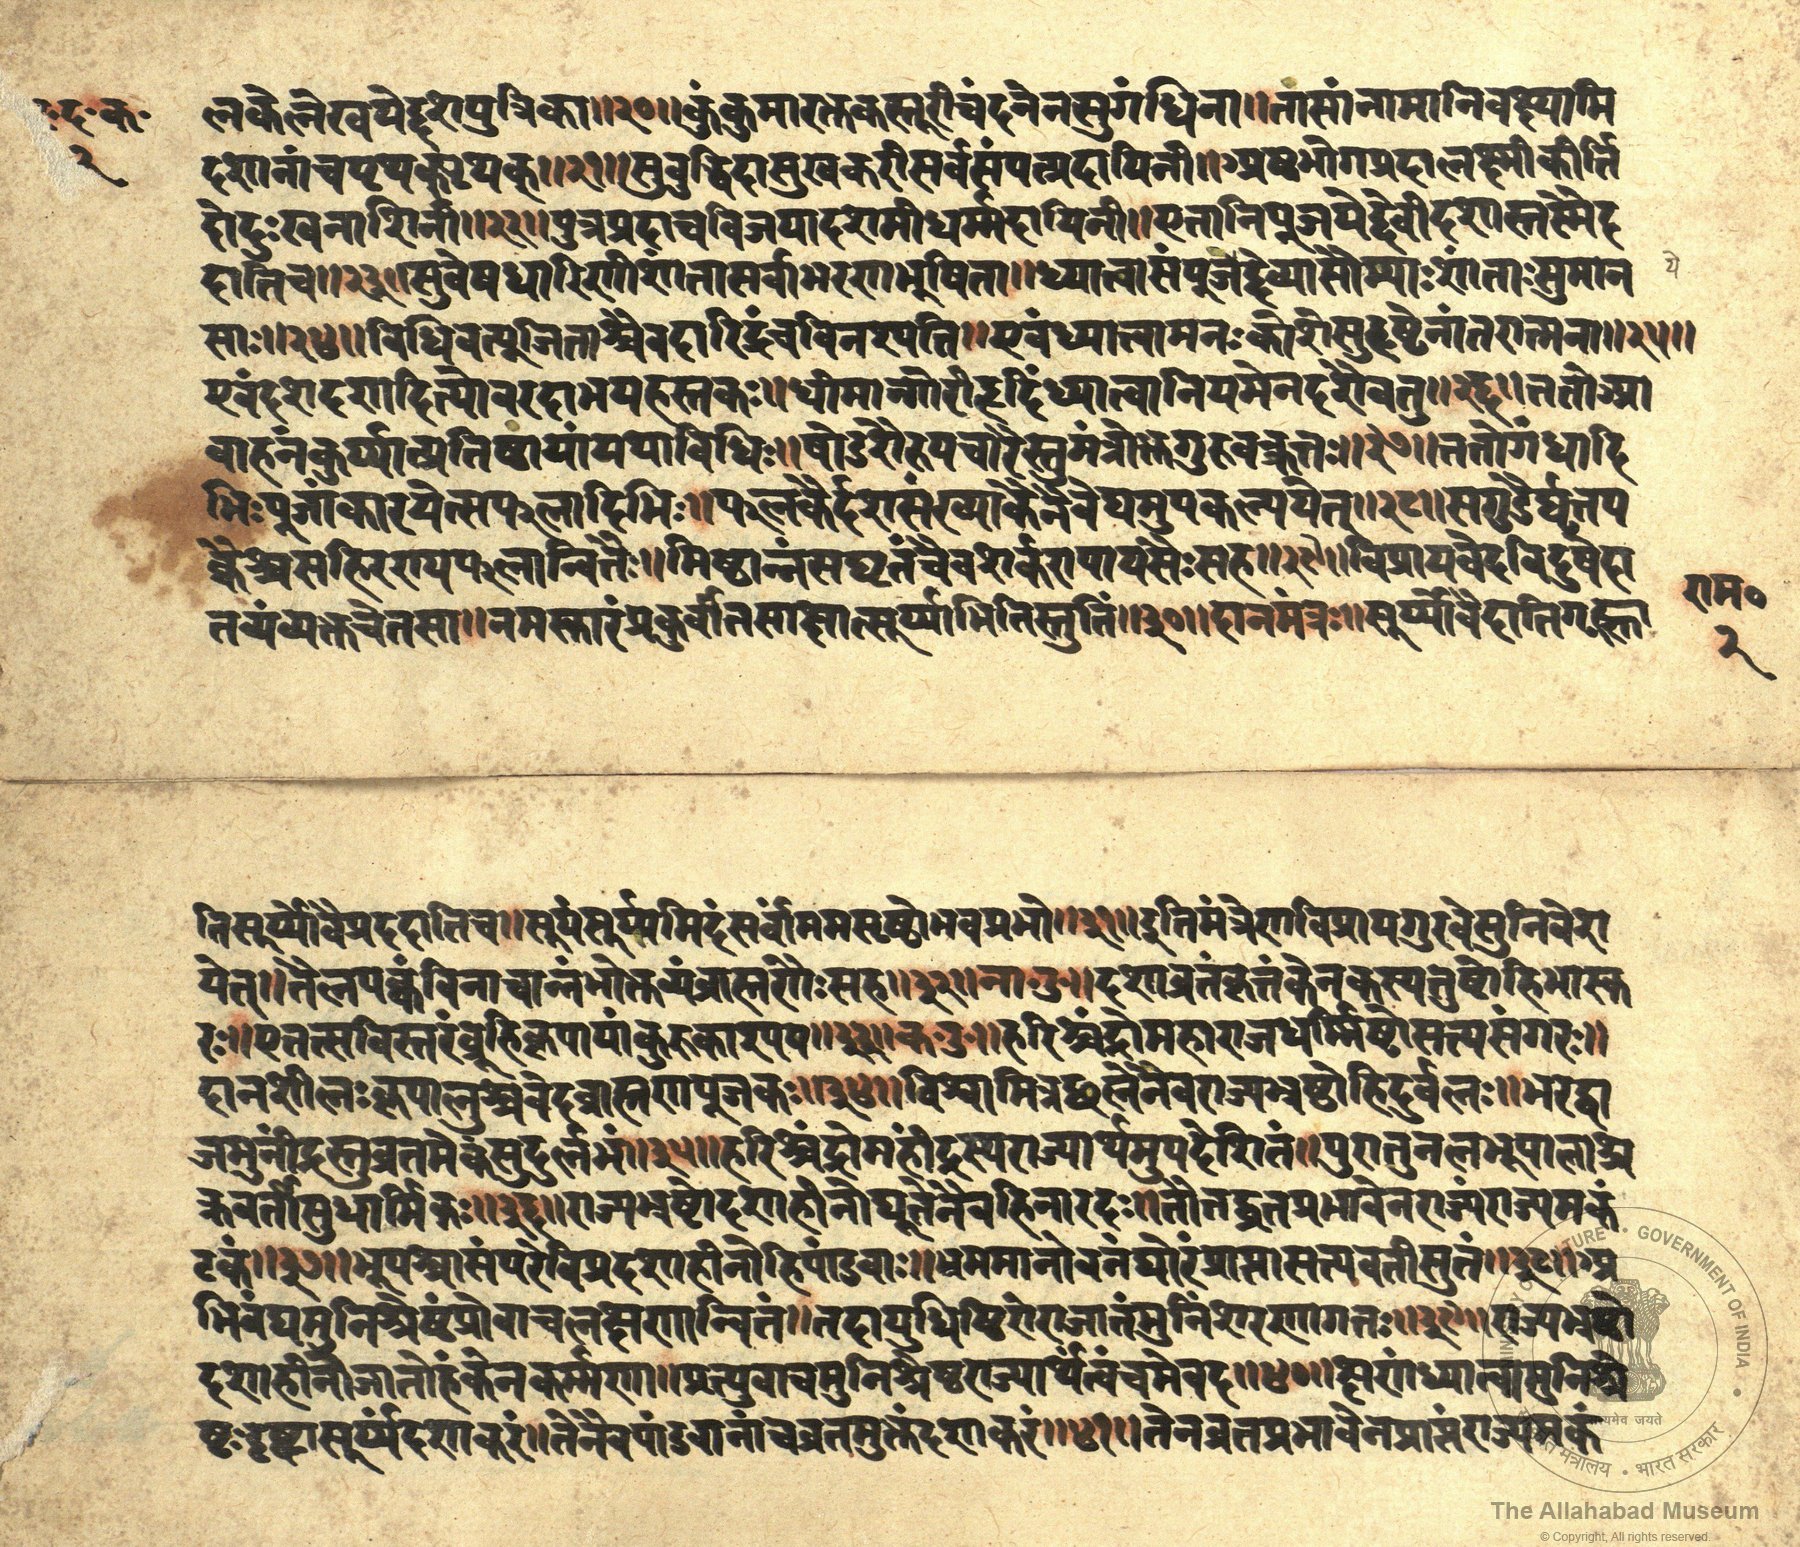 द॰ क॰
२
लकेलेखयेद्दशपुत्रिका॥२०॥कुंकुमारक्तकस्तूरीचंदनेनसुगंधिना॥तासांनामानिवक्ष्यामि
दशानांचपृथक्पृथक्॥२१॥सुबुद्धिदासुखकरीसर्वसंपत्प्रदायिनी॥अष्टभोगप्रदालक्ष्मीकीर्त्ति
दोदुःखनाशिनी॥२२॥पुत्रप्रदाचविजयादशमीधर्मदायिनी॥एतानिपुजयेद्देवीदशास्तस्मैद
दातिच॥२३॥सुवेषधारिणीशांतासर्वाभरणभुषिता॥ध्यात्वासंपुजेद्देव्यासौम्याःशांताःसुमान
ये
साः॥२४॥विधिवत्पूजिताश्चैवदारिद्रंचविनश्यति॥एवंध्यात्वामनःकाशीसुहृष्टेनांतरात्मना॥२५॥
एवंदशदशादित्यौवरदाभयहस्तकः॥धीमान्गौरीहृदिंध्यात्वानियमेनदशैवतु॥२६॥ततोआ
वाहनंकुर्य्यात्प्रतिष्ठायांयथाविधिः॥षोडशैरुपचारैस्तुमंत्रोक्तगुरुवक्त्रतः॥२७॥ततोगंधादि
भिःपुजांकारयेत्सफलादिभिः॥फलकैर्दशसंख्याकैर्नैवेद्यमुपकल्पयेत्॥२८॥सगुडैर्घृतप
क्वैश्चसहिरण्यफलान्वितैः॥मिष्ठान्नंसघृतंचैवशर्करापायसैःसह॥२९॥विप्रायवेदविदुषेदा
तव्यंव्यक्तचेतसा॥नमस्कारंप्रकुर्वीतसाक्षात्सूर्य्यामितिस्तुतिं॥३०॥दानमंत्रः॥सूर्य्योवैदातिगृह्ना
राम॰
२
तिसूर्य्योवैप्रददातिच॥सूर्यंसूर्य्यमिदंसर्वंममसृष्टोभवप्रभो॥३१॥इतिमंत्रेणविप्रायगुरवेसुनिवेश
येत्॥तैलपक्वंविनाचान्नंभोक्तव्यंब्राह्मणैःसह॥३२॥ना॰उ॰॥दशाव्रतंकृतंकेनकस्यतुष्टोहिभास्क
रः॥एतत्सविस्तरंब्रुहिकृपायांकुरुकाश्यप॥३३॥क॰उ॰॥हरिश्चंद्रोमहाराजधर्म्मिष्टोसत्यसंगरः॥
दानशीलःकृपालुश्चवेदब्राह्मणपूजकः॥३४॥विश्वामित्रछलेनैवराज्यभ्रष्टोहिदुर्बलः॥भरद्वा
जमुनींद्रस्तुव्रतमेकंसुदुर्लभं॥३५॥हरिश्चंद्रोमहींद्रस्यराज्यार्थमुपदेशितं॥पुरातुनलभूपालाश्च
क्रवर्तीसुधार्मिकः॥३६॥राज्यभ्रष्टोदशाहीनोद्यूतेनैवहिनारदः॥तौतद्व्रतप्रभावेनराज्यंराज्यमकं
टकं॥३७॥भूपश्चासंपरेविप्रदशाहीनोहिपांडवाः॥भ्रममानोवनंघोरंप्राप्तासत्यवतीसुतं॥३८॥अ
भिवंद्यमुनिश्रेष्टंप्रोवाचलक्षणान्वितं॥तदायुधिष्ठिरोराजातंमुनिंशरणागतः॥३९॥राज्यभ्रष्टो
दशाहीनोजातोहंकेनकर्म्मणा॥प्रत्युवाचमुनिश्रेष्ठराज्यार्थंत्वंचमेवद॥४०॥क्षणंध्यात्वामुनिश्रे
ष्टःदृष्ट्वासूर्य्यंदशाकरं॥तेनैवपांडवानांचव्रतमुक्तंदशाकरं॥४१॥तेनव्रतप्रभावेनप्राप्तंराज्यमकं
MINISTRY OF CULTURE • GOVERNMENT OF INDIA
सत्यमेव जयते
संस्कृति मंत्रालय • भारत सरकार
The Allahabad Museum
© Copyright, All rights reserved.